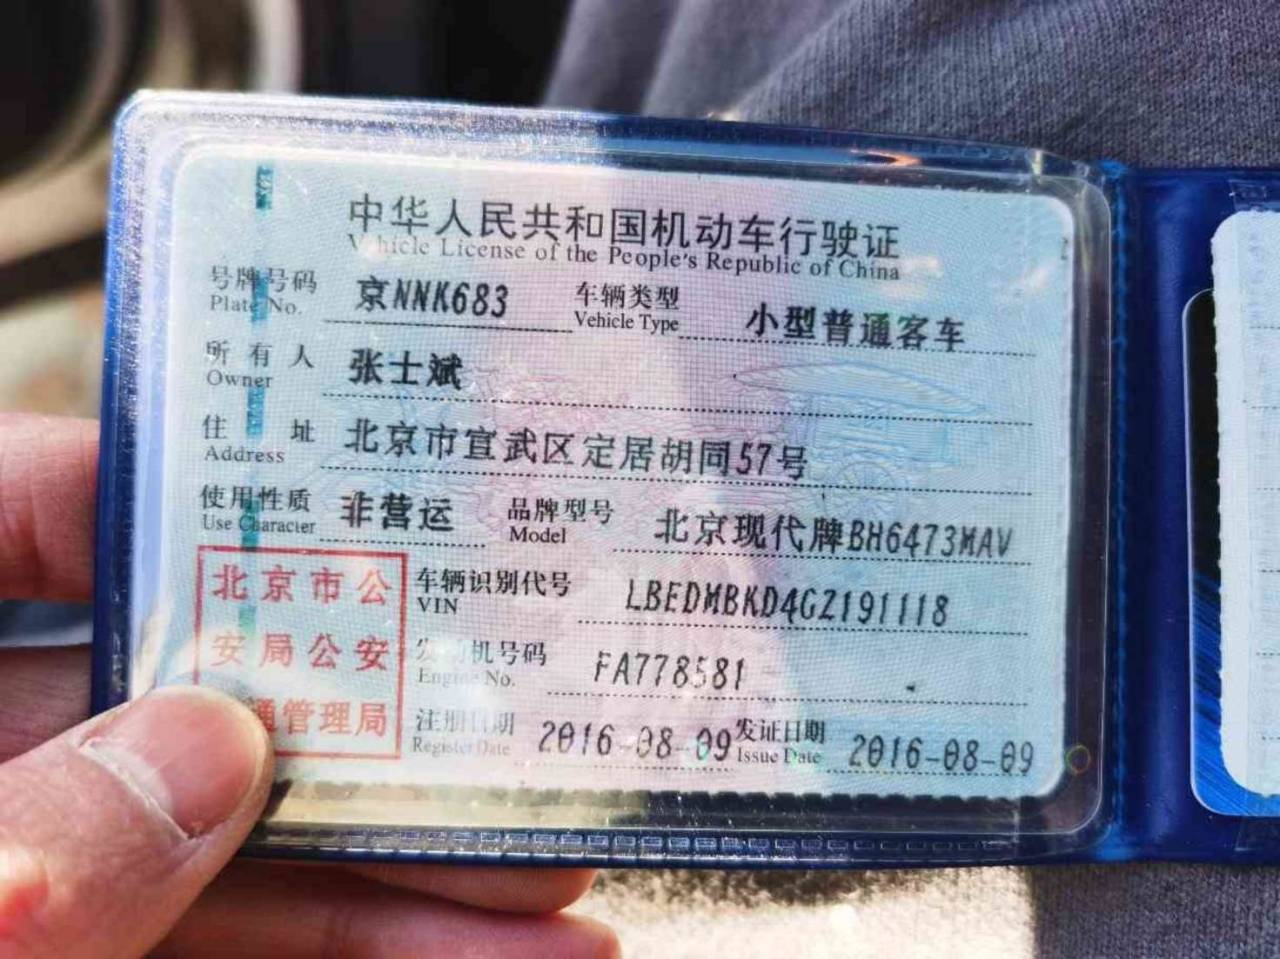 中华人民共和国机动车行驶证
Vehicle License of the People's Republic of China
号牌号码 京NNK683 车辆类型 小型普通客车
Plate No. Vehicle Type
所有人 张士斌
Owner
住址 北京市宣武区定居胡同57号
Address
使用性质 非营运 品牌型号 北京现代牌BH6473MAV
Use Character Model
北京市公 车辆识别代号 LBEDMBKD4GZ191118
VIN
安局公安 发动机号码 FA778581
Engine No.
通管理局 注册日期 2016-08-09 发证日期 2016-08-09
Register Date Issue Date